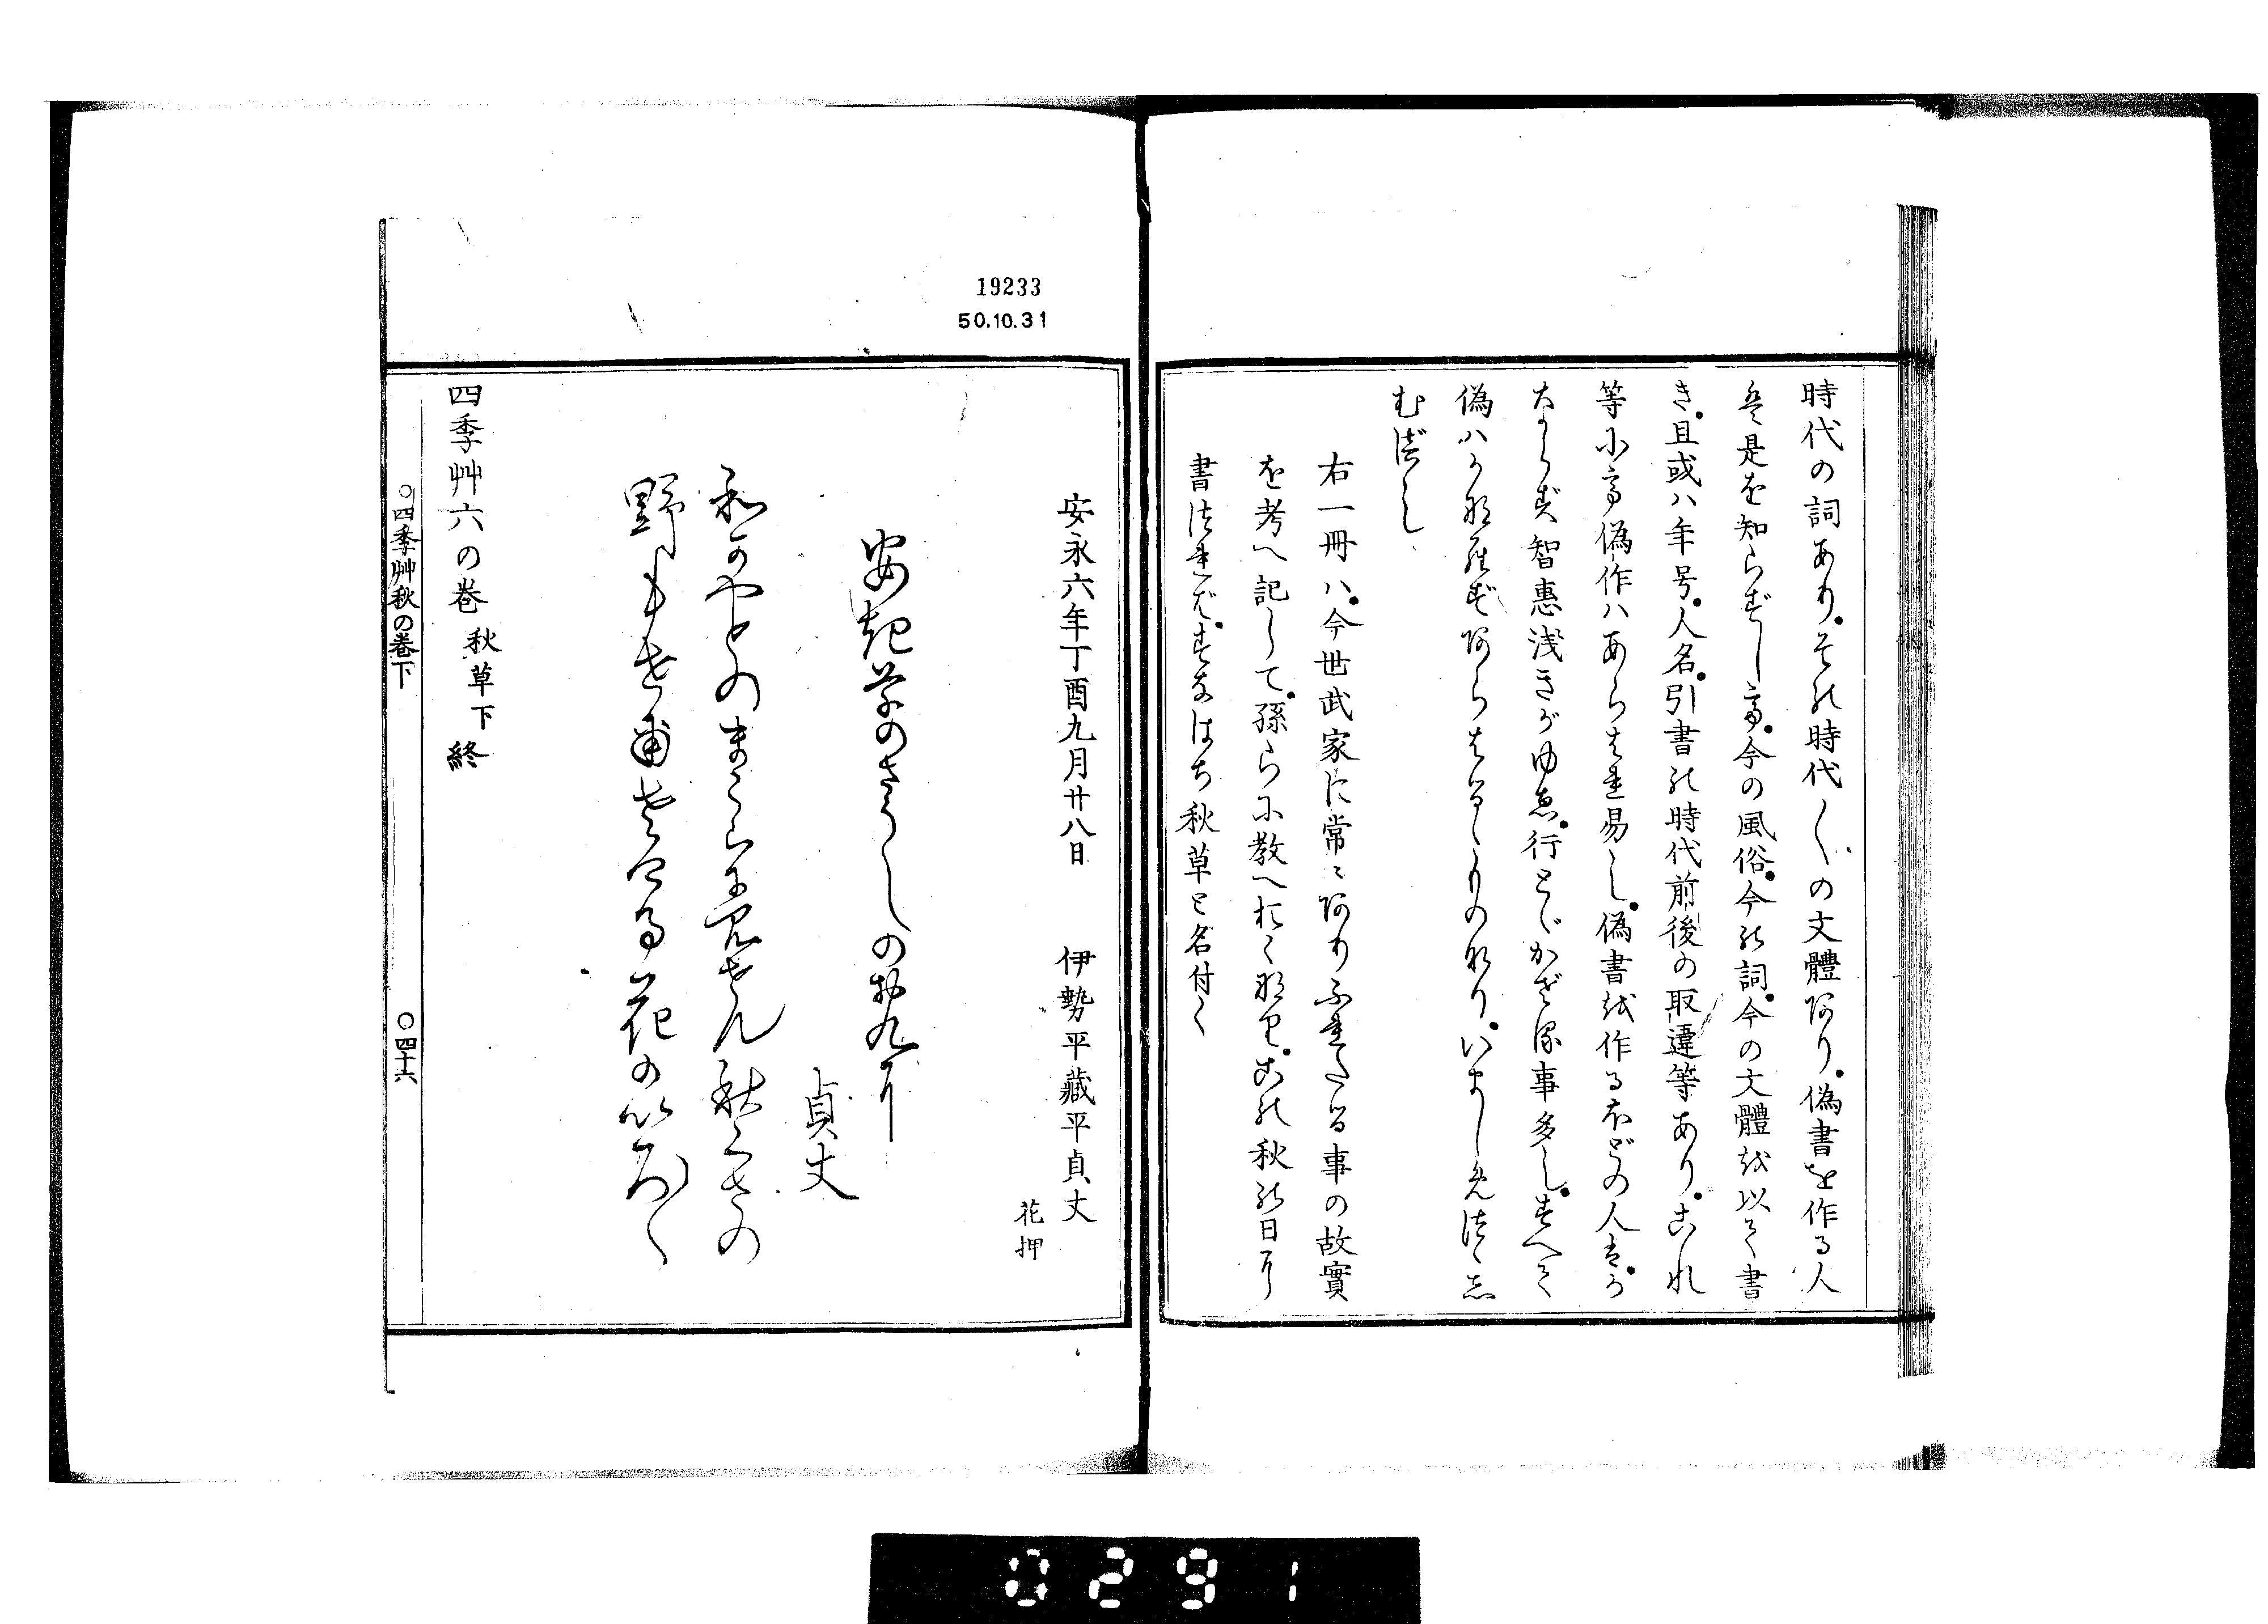 時代の詞あり。その時代〱の文體あり。偽書を作る人
是を知らずして。今の風俗。今の詞。今の文體を以て書
き。且或ハ年号。人名。引書の時代前後の取違等あり。これ
等にて偽作ハあらはれ易し。偽書を作るほどの人は。か
ならず智惠浅きがゆゑ。行とゞかざる事多し。すべて
偽ハかならずあらはるゝものなり。いましめつゝし
むべし
右一冊ハ。今世武家に常ニありふれたる事の故實
を考へ記して。孫らに教へおくなり。この秋の日に
書つれば。すなはち秋草と名付く
19233
50.10.31
安永六年丁酉九月廿八日 伊勢平藏平貞丈
花押
安起草のさうしのおくに
貞丈
わかやとのまくらにみせん秋くさの
野もせにさける花のいろ〱
四季艸六の巻 秋草下 終
○四季艸秋の巻下 ○四十六
0291